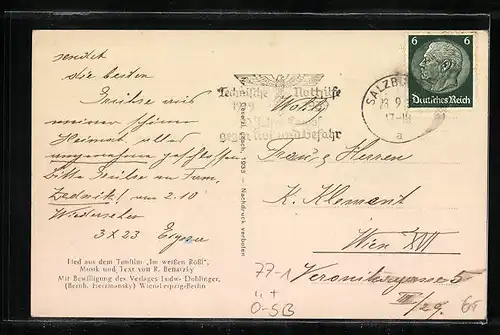 sendet
die besten
Grüße aus
meiner schönen
Heimat
Bitte Grüße an Fam.
um 2.10
Wiedersehen
3 X 23
Lied aus dem Tonfilm „Im weißen Rößl".
Musik und Text von R. Benatzky
Mit Bewilligung des Verlages Ludw. Doblinger,
(Bernh. Herzmansky) Wien-Leipzig-Berlin
Gesetzl. gesch. 1933 - Nachdruck verboten
Technische Nothilfe
1919
gegen Not und Gefahr
SALZBU
23.9
17-18
a
6 6
Deutsches Reich
Wohlg.
Frau u. Herren
K. Klement
Wien XVII
Veronikagasse 5
III/29.
77-1
Ö-SB